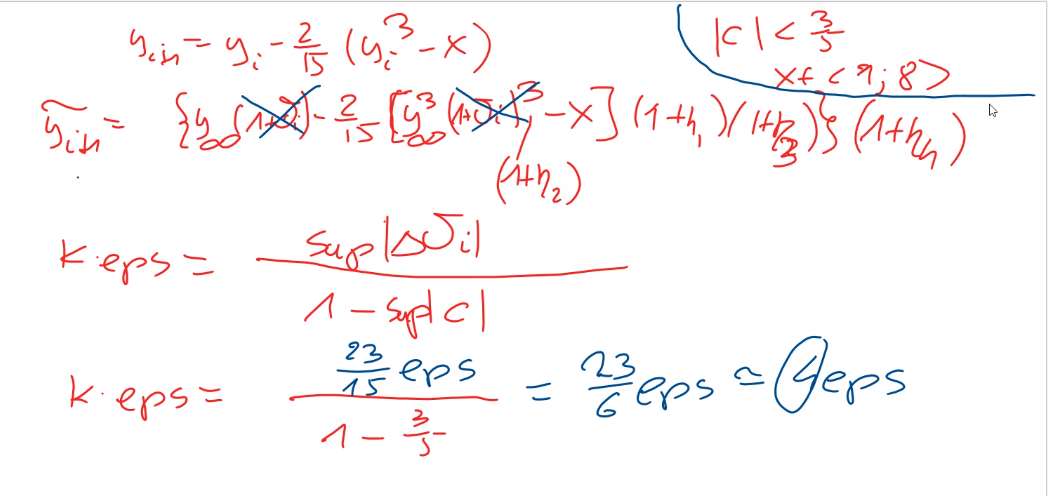 y_{i+1} = y_i - \frac{2}{15} (y_i^3 - x)
|c| < \frac{3}{5}
x ∈ <1; 8>
\tilde{y}_{i+1} = {y_∞ (1+δ_i) - \frac{2}{15} [y_∞^3 (1+δ_i)^3 - x] (1+η_1)(1+η_3)} (1+η_4)
(1+η_2)
k·eps = \frac{sup|Δδ_i|}{1 - sup|c|}
k·eps = \frac{\frac{23}{15} eps}{1 - \frac{3}{5}} = \frac{23}{6} eps ≃ 4eps